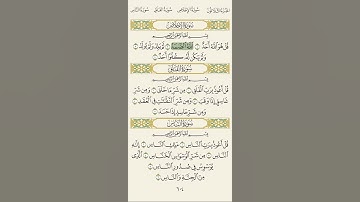 سُورَةُ الإِخْلَاصِ سُورَةُ الفَلَقِ سُورَةُ النَّاسِ
سُورَةُ الإِخْلَاصِ
بِسْمِ اللَّهِ الرَّحْمَٰنِ الرَّحِيمِ
قُلْ هُوَ اللَّهُ أَحَدٌ ١ اللَّهُ الصَّمَدُ ٢ لَمْ يَلِدْ وَلَمْ يُولَدْ ٣
وَلَمْ يَكُن لَّهُ كُفُوًا أَحَدٌ ٤
سُورَةُ الفَلَقِ
بِسْمِ اللَّهِ الرَّحْمَٰنِ الرَّحِيمِ
قُلْ أَعُوذُ بِرَبِّ الْفَلَقِ ١ مِن شَرِّ مَا خَلَقَ ٢ وَمِن شَرِّ
غَاسِقٍ إِذَا وَقَبَ ٣ وَمِن شَرِّ النَّفَّاثَاتِ فِي الْعُقَدِ ٤
وَمِن شَرِّ حَاسِدٍ إِذَا حَسَدَ ٥
سُورَةُ النَّاسِ
بِسْمِ اللَّهِ الرَّحْمَٰنِ الرَّحِيمِ
قُلْ أَعُوذُ بِرَبِّ النَّاسِ ١ مَلِكِ النَّاسِ ٢ إِلَٰهِ
النَّاسِ ٣ مِن شَرِّ الْوَسْوَاسِ الْخَنَّاسِ ٤ الَّذِي
يُوَسْوِسُ فِي صُدُورِ النَّاسِ ٥
مِنَ الْجِنَّةِ وَالنَّاسِ ٦
٦٠٤